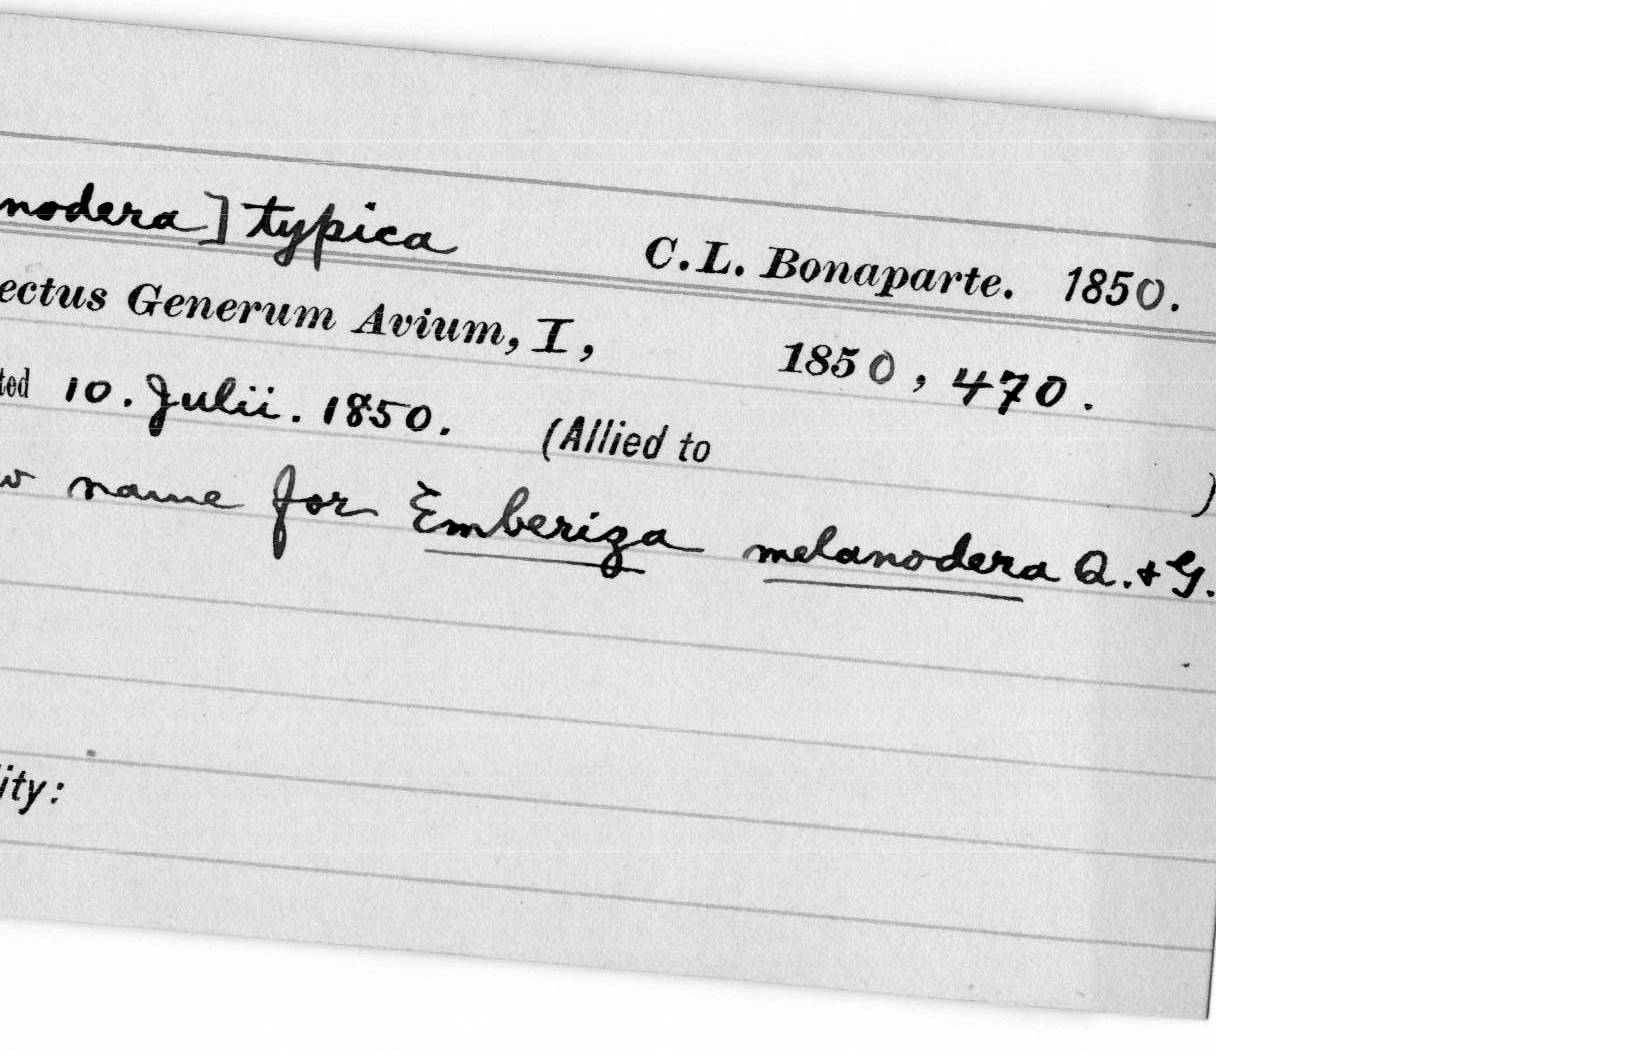 nodera] typica C.L. Bonaparte. 1850.
ectus Generum Avium, I, 1850, 470.
ted 10. Julii. 1850. (Allied to )
w name for Emberiza melanodera Q. + G.
ity: